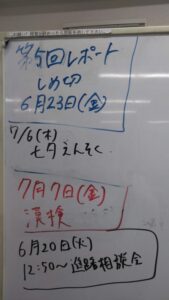 第5回レポート
しめ切
6月23日(金)
7/6(木)
七夕えんそく
7月7日(金)
漢検
6月20日(火)
12:50〜進路相談会